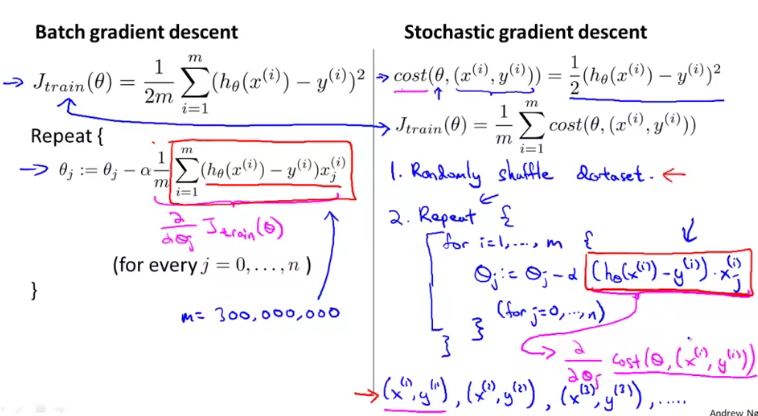 Batch gradient descent
J_train(θ) = 1/2m ∑_{i=1}^{m} (h_θ(x^(i)) − y^(i))²
Repeat {
θ_j := θ_j − α 1/m ∑_{i=1}^{m} (h_θ(x^(i)) − y^(i))x_j^(i)
∂/∂θ_j J_train(θ)
(for every j = 0, . . . , n )
}
m = 300,000,000
Stochastic gradient descent
cost(θ, (x^(i), y^(i))) = 1/2 (h_θ(x^(i)) − y^(i))²
J_train(θ) = 1/m ∑_{i=1}^{m} cost(θ, (x^(i), y^(i)))
1. Randomly shuffle dataset.
2. Repeat {
for i=1,..., m {
θ_j := θ_j − α (h_θ(x^(i)) − y^(i)) · x_j^(i)
(for j=0,...,n)
}
}
∂/∂θ_j cost(θ, (x^(i), y^(i)))
(x^(1), y^(1)), (x^(2), y^(2)), (x^(3), y^(3)), .....
Andrew Ng